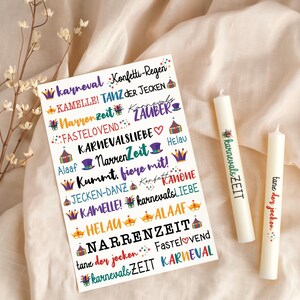 Karneval Konfetti-Regen
KAMELLE! TANZ DER JECKEN
Narrenzeit Karnevals ZAUBER
FASTELOVEND
KARNEVALSLIEBE
Alaaf NarrenZeit Helau
Kummt, fiere mit!
JECKEN-DANZ KAMELLE
KAMELLE! karnevalsLIEBE
HELAU ALAAF
NARRENZEIT
tanz der jecken Fastelovend
karnevalsZEIT KARNEVAL
karnevalsZEIT
tanz der jecken